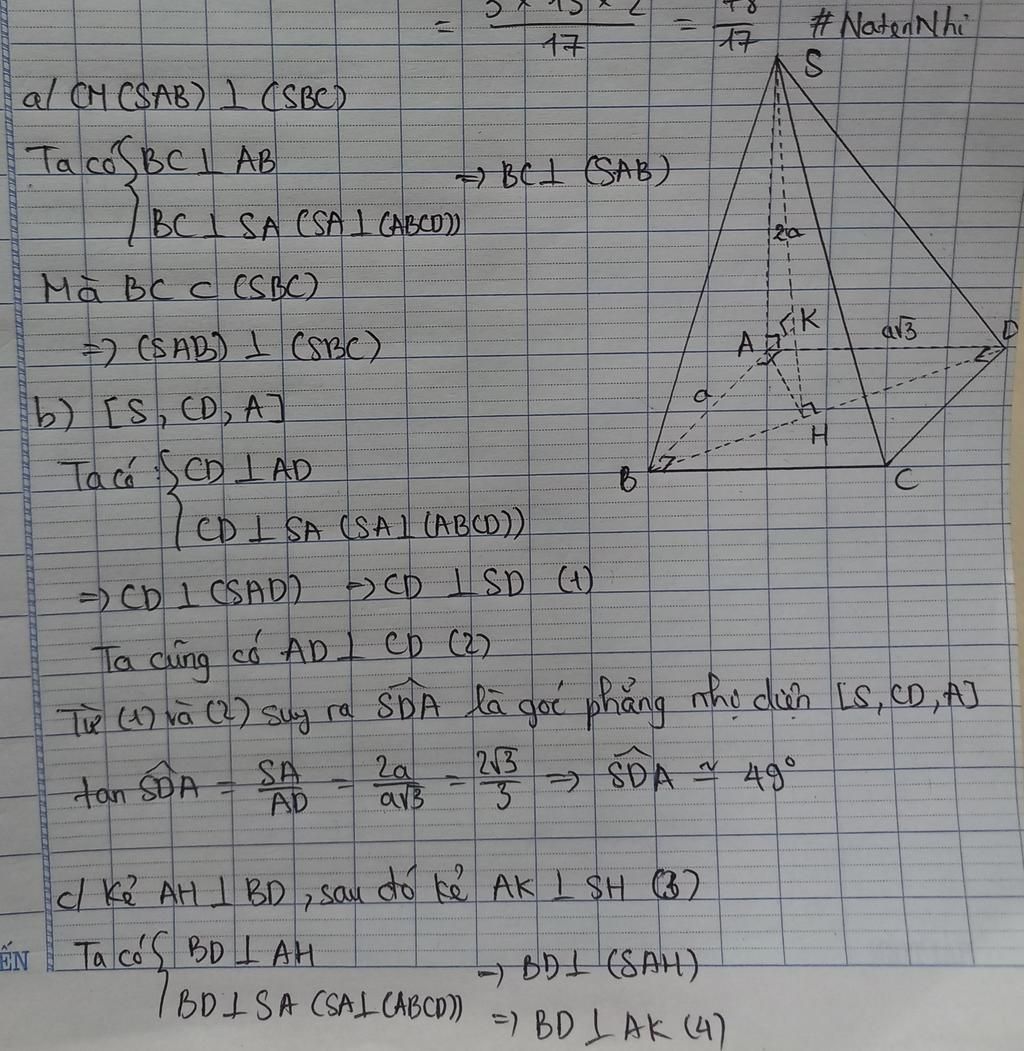 = 3 × 13 × 2 / 17 = 78/17 #NatenNhi
a/ CM (SAB) ⊥ (SBC)
Ta có { BC ⊥ AB
BC ⊥ SA (SA ⊥ (ABCD))
=> BC ⊥ (SAB)
Mà BC ⊂ (SBC)
=> (SAB) ⊥ (SBC)
b) [S, CD, A]
Ta có { CD ⊥ AD
CD ⊥ SA (SA ⊥ (ABCD))
=> CD ⊥ (SAD) => CD ⊥ SD (1)
Ta cũng có AD ⊥ CD (2)
Từ (1) và (2) suy ra SDA là góc phẳng nhị diện [S, CD, A]
tan SDA = SA/AD = 2a/a√3 = 2√3/3 => SDA ≃ 49°
c/ Kẻ AH ⊥ BD, sau đó kẻ AK ⊥ SH (3)
Ta có { BD ⊥ AH
BD ⊥ SA (SA ⊥ (ABCD))
=> BD ⊥ (SAH)
=> BD ⊥ AK (4)
S
2a
K
A
a√3
D
a
H
B
C
ẾN